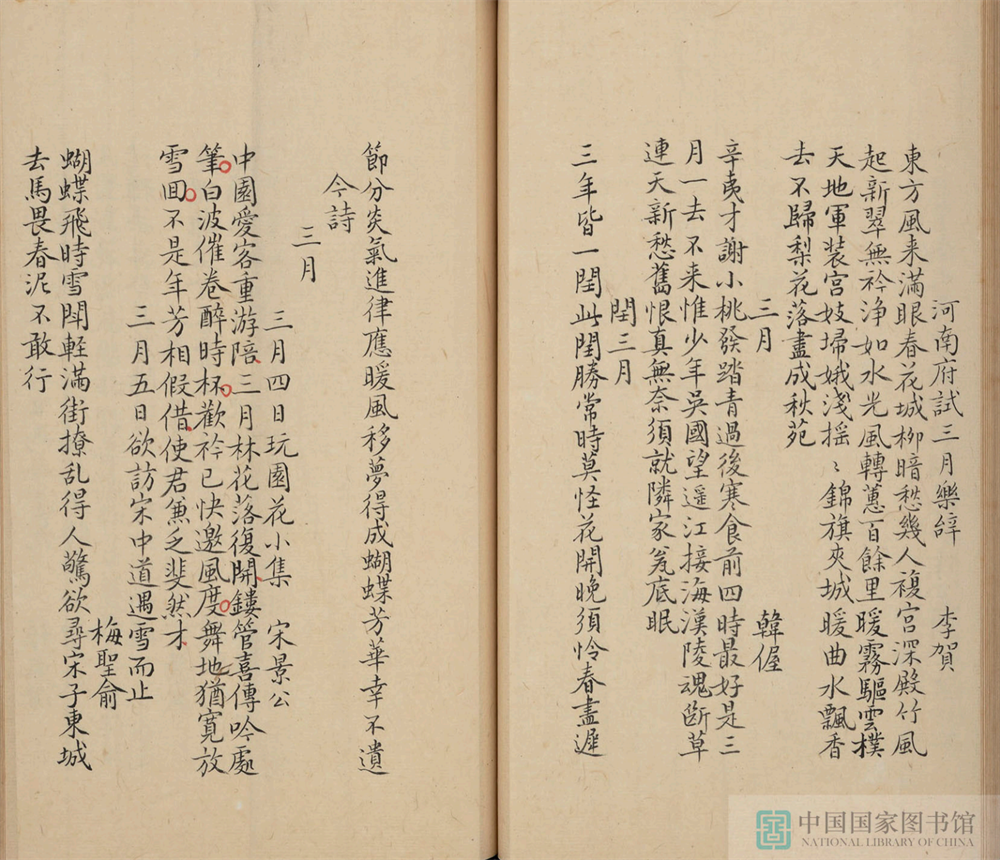 河南府試三月樂辝　李賀
東方風来滿眼春花城柳暗愁幾人複宫深殿竹風
起新翠無衿浄如水光風轉蕙百餘里暖霧驅雲撲
天地軍装宫妓埽娥淺摇〻錦旗夾城暖曲水飄香
去不歸梨花落盡成秋苑
三月　韓偓
辛夷才謝小桃發踏青過後寒食前四時最好是三
月一去不来惟少年吳國望遥江接海漢陵魂斷草
連天新愁舊恨真無奈須就隣家瓮底眠
閏三月
三年皆一閏此閏勝常時莫怪花開晚須怜春盡遲
節分炎氣進律應暖風移夢得成蝴蝶芳華幸不遺
今詩
三月
三月四日玩園花小集　宋景公
中園愛客重游陪三月林花落復開鏤管喜傳吟處
筆白波催卷醉時杯歡衿已快邀風度舞地猶寛放
雪囬不是年芳相假借使君兼乏斐然才
三月五日欲訪宋中道遇雪而止
梅聖俞
蝴蝶飛時雪閗輕滿街撩乱得人驚欲尋宋子東城
去馬畏春泥不敢行
中国国家图书馆
NATIONAL LIBRARY OF CHINA